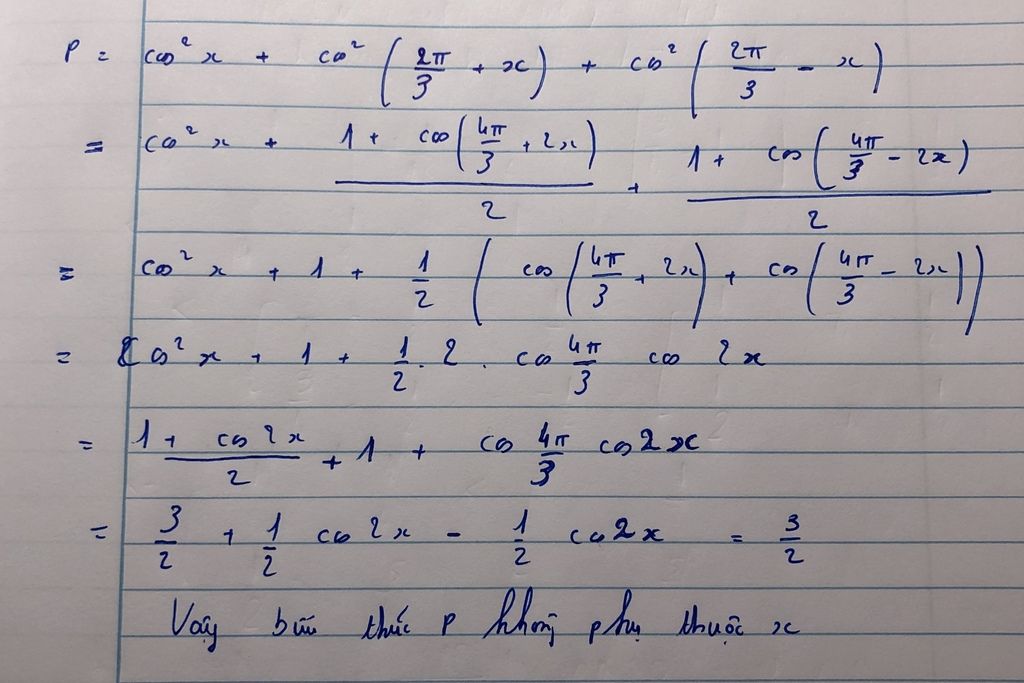 P = cos² x + cos² (2π/3 + x) + cos² (2π/3 - x)
= cos² x + (1 + cos(4π/3 + 2x))/2 + (1 + cos(4π/3 - 2x))/2
= cos² x + 1 + 1/2 (cos(4π/3 + 2x) + cos(4π/3 - 2x))
= cos² x + 1 + 1/2 . 2 . cos 4π/3 cos 2x
= (1 + cos 2x)/2 + 1 + cos 4π/3 cos 2x
= 3/2 + 1/2 cos 2x - 1/2 cos 2x = 3/2
Vậy biểu thức P không phụ thuộc x